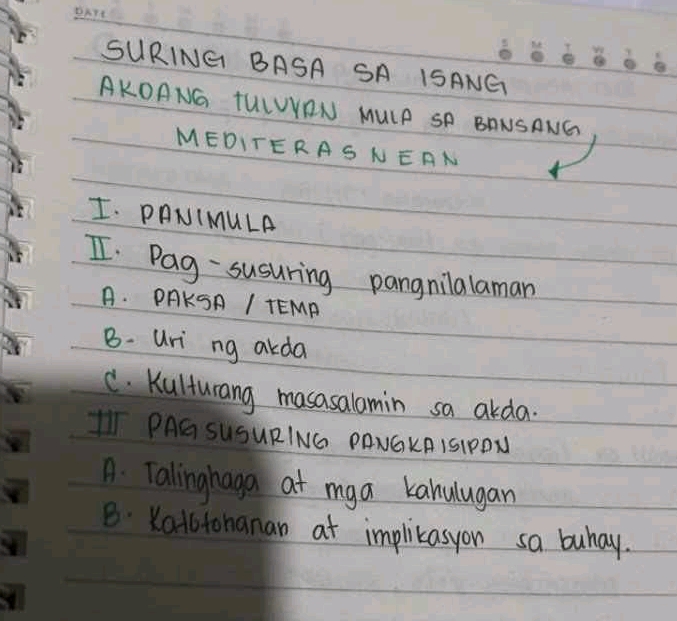 DATE
S M T W T F
SURING BASA SA ISANG
AKDANG TULUYAN MULA SA BANSANG
MEDITERASNEAN
I. PANIMULA
II. Pag-susuring pangnilalaman
A. PAKSA / TEMA
B. Uri ng akda
C. Kulturang masasalamin sa akda.
III PAGSUSURING PANGKAISIPAN
A. Talinghaga at mga kahulugan
B. Katotohanan at implikasyon sa buhay.